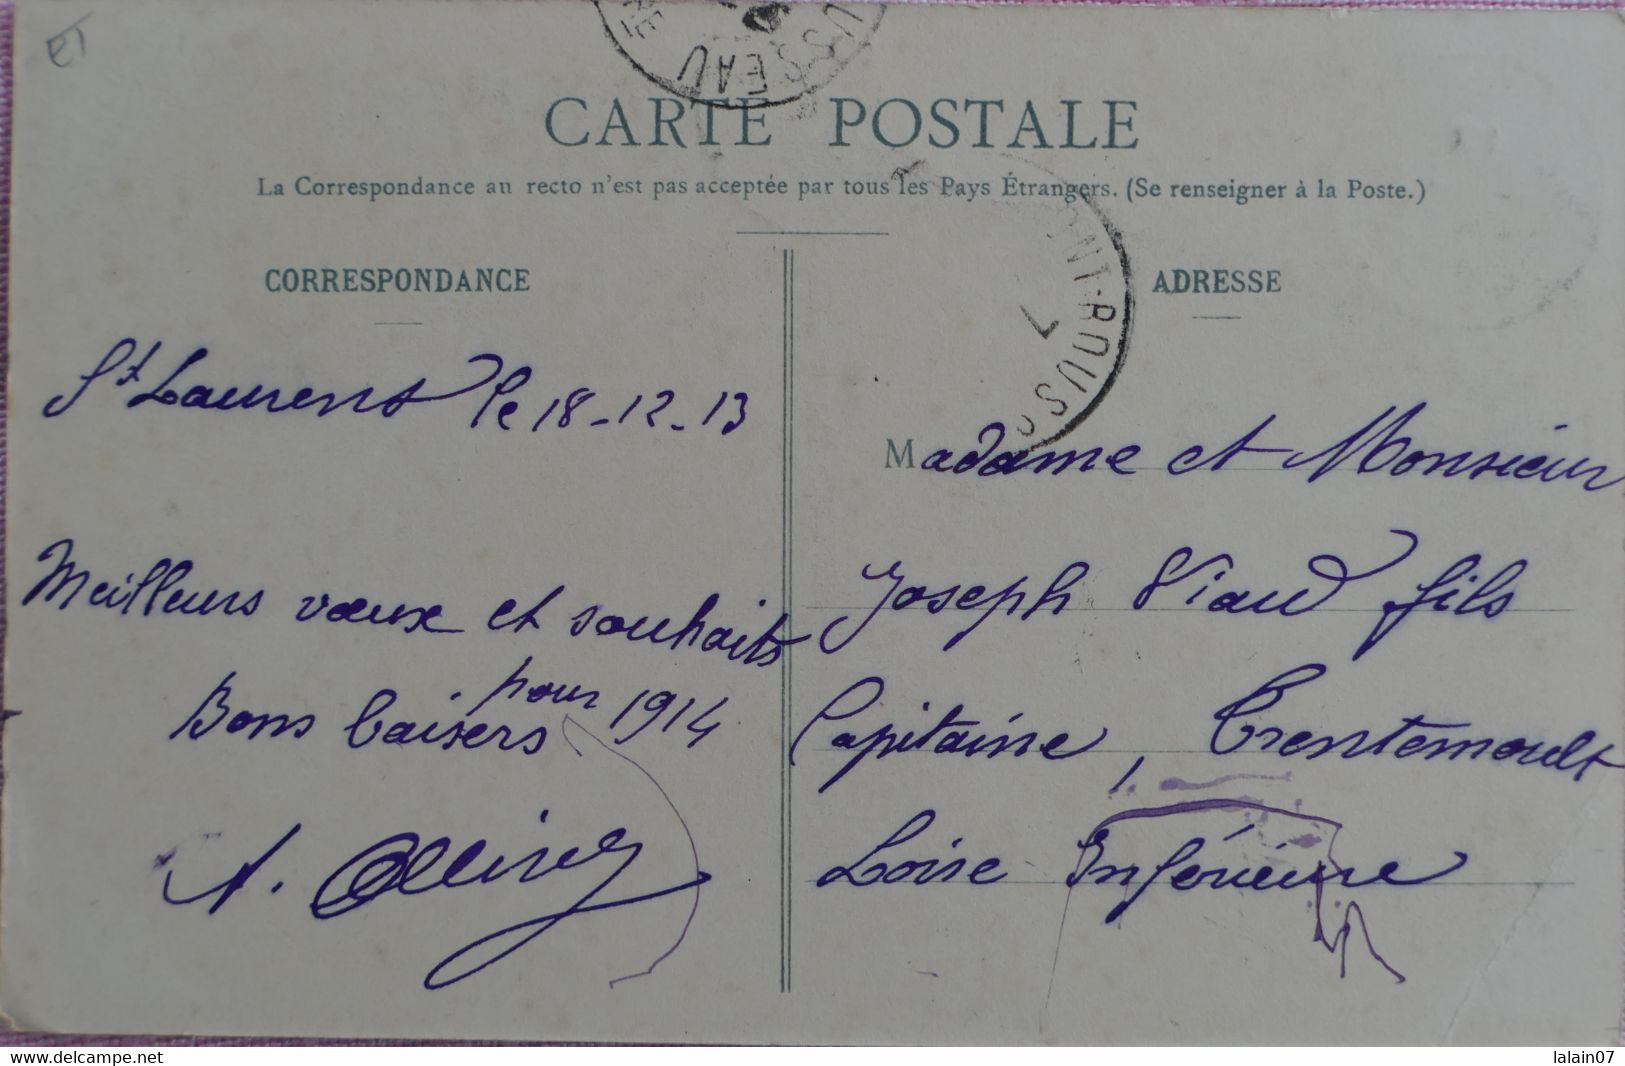 CARTE POSTALE
La Correspondance au recto n'est pas acceptée par tous les Pays Étrangers. (Se renseigner à la Poste.)
CORRESPONDANCE
St Laurent le 18-12-13
Meilleurs vœux et souhaits
pour 1914
Bons baisers
ADRESSE
Madame et Monsieur
Joseph Viaud fils
Capitaine, Trentemoult
Loire Inférieure
USSEAU
NT-ROUSS
www.delcampe.net
lalain07